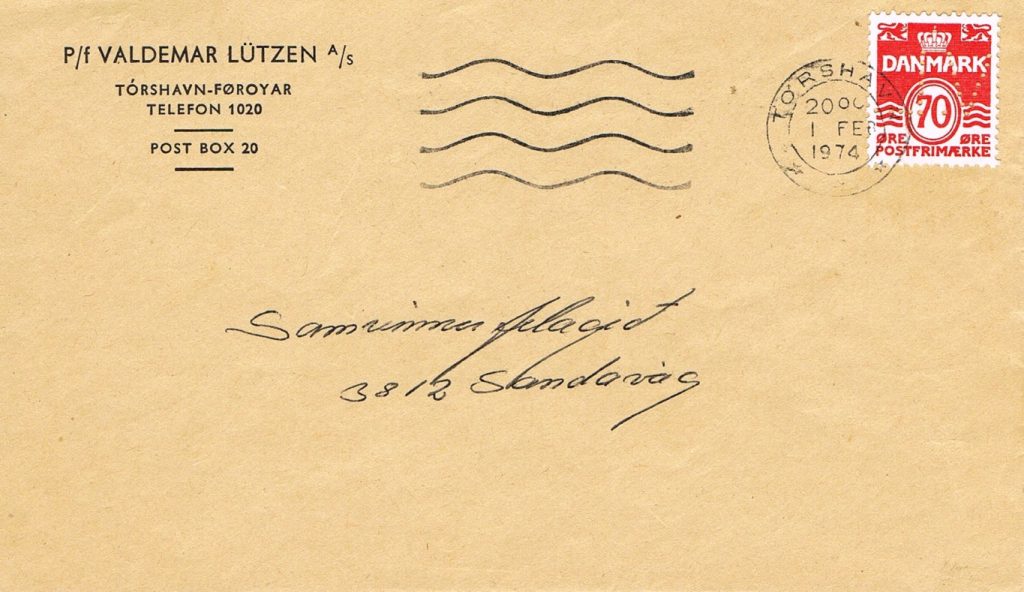 P/f VALDEMAR LÜTZEN A/s
TÓRSHAVN-FØROYAR
TELEFON 1020
POST BOX 20
TÓRSHAV
20 00
1 FEB
1974
DANMARK
70
ØRE ØRE
POSTFRIMÆRKE
Samvinnufelagið
3812 Sandavág